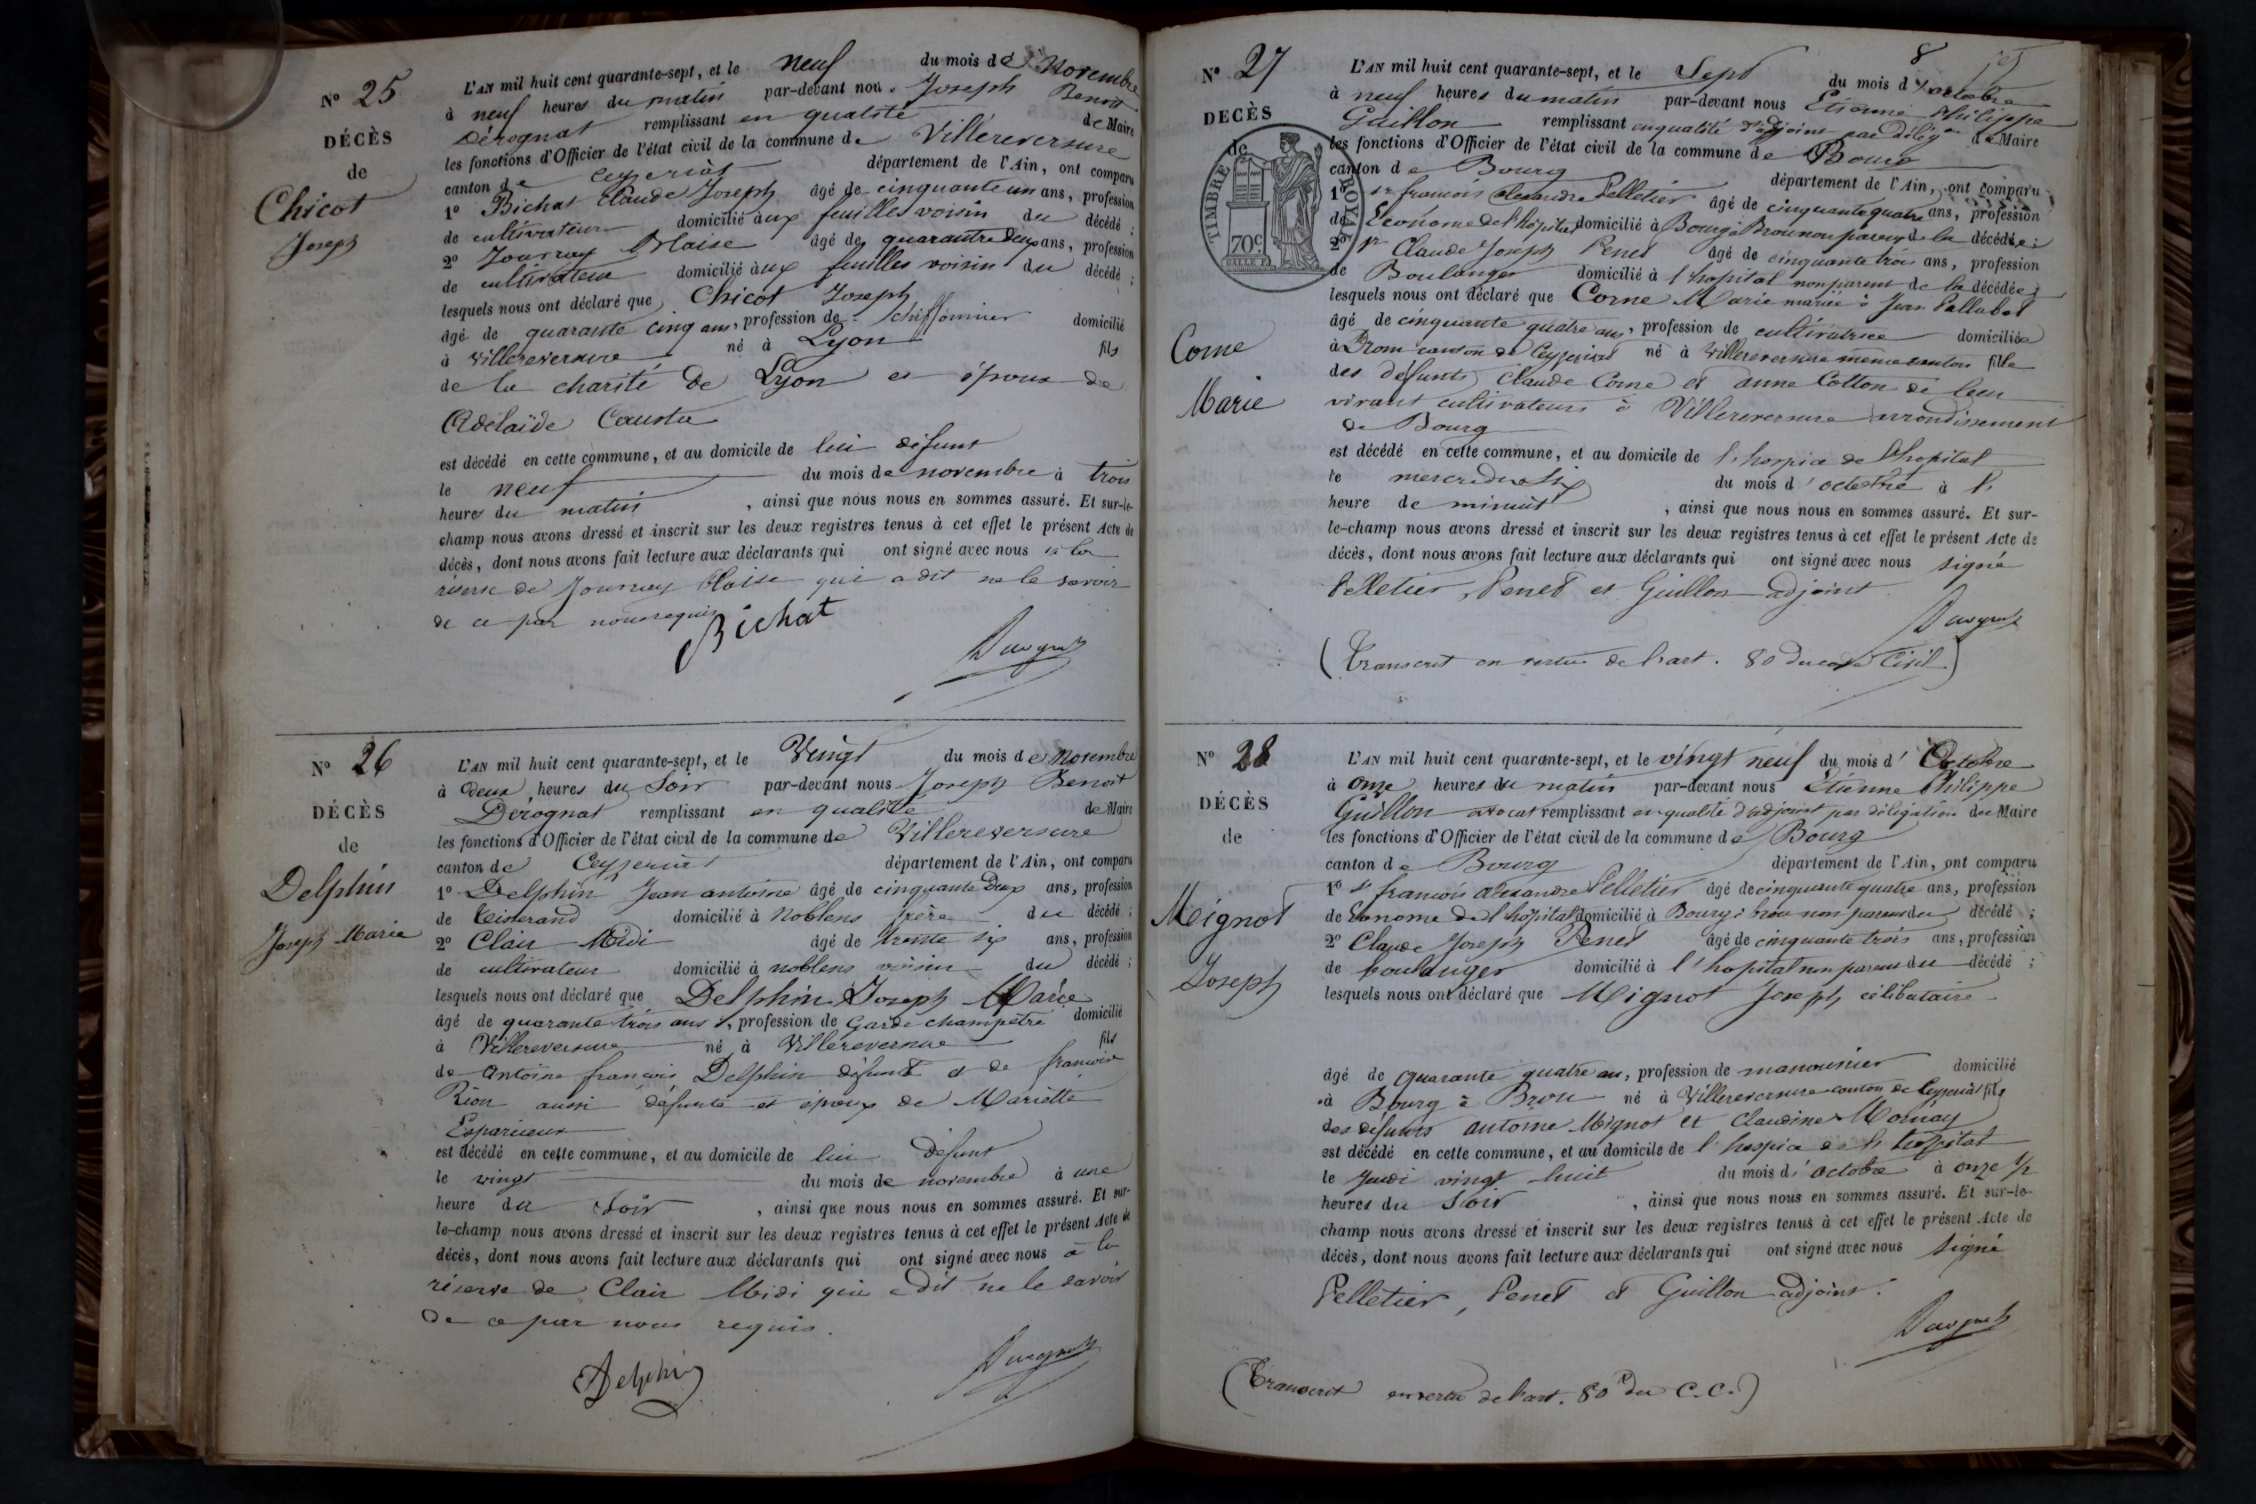 N° 25
DÉCÈS
de
Chicot
Joseph
L'AN mil huit cent quarante-sept, et le neuf du mois de Novembre
à neuf heures du matin par-devant nous Joseph Benoit
Dérognat remplissant en qualité de Maire
les fonctions d'Officier de l'état civil de la commune de Villereversure
canton de Ceyzeriat département de l'Ain, ont comparu
1° Bichat Claude Joseph âgé de cinquante un ans, profession
de cultivateur domicilié aux feuilles voisin du décédé ;
2° Journay Blaise âgé de quarante deux ans, profession
de cultivateur domicilié aux feuilles voisin du décédé ;
lesquels nous ont déclaré que Chicot Joseph
âgé de quarante cinq ans, profession de chiffonnier domicilié
à Villereversure né à Lyon fils
de la charité de Lyon et époux de
Adélaïde
est décédé en cette commune, et au domicile de lui défunt
le neuf du mois de novembre à trois
heures du matin , ainsi que nous nous en sommes assuré. Et sur-le-
champ nous avons dressé et inscrit sur les deux registres tenus à cet effet le présent Acte de
décès, dont nous avons fait lecture aux déclarants qui ont signé avec nous à la
réserve de Journay Blaise qui a dit ne le savoir
de ce par nous requis
Bichat
N° 26
DÉCÈS
de
Delphin
Joseph Marie
L'AN mil huit cent quarante-sept, et le Vingt du mois de Novembre
à deux heures du Soir par-devant nous Joseph Benoit
Dérognat remplissant en qualité de Maire
les fonctions d'Officier de l'état civil de la commune de Villereversure
canton de Ceyzeriat département de l'Ain, ont comparu
1° Delphin Jean antoine âgé de cinquante Deux ans, profession
de tisserand domicilié à Noblens frère du décédé ;
2° Clair Midi âgé de trente six ans, profession
de cultivateur domicilié à noblens voisin du décédé ;
lesquels nous ont déclaré que Delphin Joseph Marie
âgé de quarante trois ans, profession de Garde champêtre domicilié
à Villereversure né à Villereversure fils
de Antoine françois Delphin défunt et de françoise
Rion aussi défunte et époux de Mariette
est décédé en cette commune, et au domicile de lui Défunt
le vingt du mois de novembre à une
heure du Soir , ainsi que nous nous en sommes assuré. Et sur-
le-champ nous avons dressé et inscrit sur les deux registres tenus à cet effet le présent Acte de
décès, dont nous avons fait lecture aux déclarants qui ont signé avec nous à la
réserve de Clair Midi qui a dit ne le savoir
de ce par nous requis.
Delphin
8
N° 27
DÉCÈS
de
TIMBRE ROYAL
70c
Corne
Marie
L'AN mil huit cent quarante-sept, et le Sept du mois d'octobre
à neuf heures du matin par-devant nous Etienne Philippe
Guillon remplissant en qualité d'adjoint par délégon de Maire
les fonctions d'Officier de l'état civil de la commune de Bourg
canton de Bourg département de l'Ain, ont comparu
1° sr françois alexandre Pelletier âgé de cinquante quatre ans, profession
de Econome de l'hôpital domicilié à Bourg à Brou non parent de la décédée ;
2° sr Claude Joseph Penet âgé de cinquante trois ans, profession
de Boulanger domicilié à l'hopital non parent de la décédée ;
lesquels nous ont déclaré que Corne Marie mariée à Jean
âgé de cinquante quatre ans, profession de cultivatrice domiciliée
à canton de Ceyzeriat né à Villereversure même canton fille
des défunts Claude Corne et anne Cotton de leur
vivant cultivateurs à Villereversure arrondissement
de Bourg
est décédé en cette commune, et au domicile de l'hospice de l'hopital
le mercredi six du mois d'octobre à l'
heure de minuit , ainsi que nous nous en sommes assuré. Et sur-
le-champ nous avons dressé et inscrit sur les deux registres tenus à cet effet le présent Acte de
décès, dont nous avons fait lecture aux déclarants qui ont signé avec nous signé
Pelletier, Penet et Guillon adjoint
(Transcrit en vertu de l'art. 80 du code Civil.)
N° 28
DÉCÈS
de
Mignot
Joseph
L'AN mil huit cent quarante-sept, et le vingt neuf du mois d'Octobre
à onze heures du matin par-devant nous Etienne Philippe
Guillon avocat remplissant en qualité d'adjoint par délégation de Maire
les fonctions d'Officier de l'état civil de la commune de Bourg
canton de Bourg département de l'Ain, ont comparu
1° sr françois alexandre Pelletier âgé de cinquante quatre ans, profession
de Econome de l'hôpital domicilié à Bourg à brou non parent du décédé ;
2° Claude Joseph Penet âgé de cinquante trois ans, profession
de boulanger domicilié à l'hopital non parent du décédé ;
lesquels nous ont déclaré que Mignot Joseph célibataire
âgé de quarante quatre ans, profession de manouvrier domicilié
à Bourg à Brou né à Villereversure canton de Ceyzeriat fils
des défunts antoine Mignot et Claudine Mornay
est décédé en cette commune, et au domicile de l'hospice de l'hopital
le Jeudi vingt huit du mois d'octobre à onze 1/2
heures du Soir , ainsi que nous nous en sommes assuré. Et sur-le-
champ nous avons dressé et inscrit sur les deux registres tenus à cet effet le présent Acte de
décès, dont nous avons fait lecture aux déclarants qui ont signé avec nous signé
Pelletier, Penet et Guillon adjoint.
(Transcrit en vertu de l'art. 80 du C.C.)